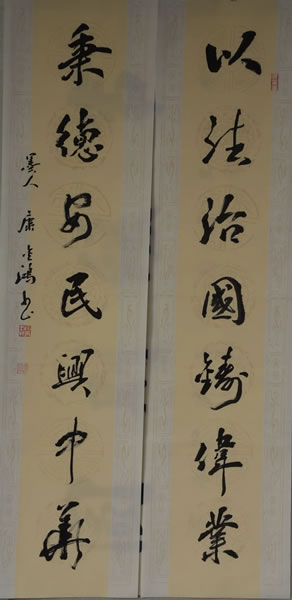 以法治國鑄偉業
秉德安民興中華
墨人 康金鴻書